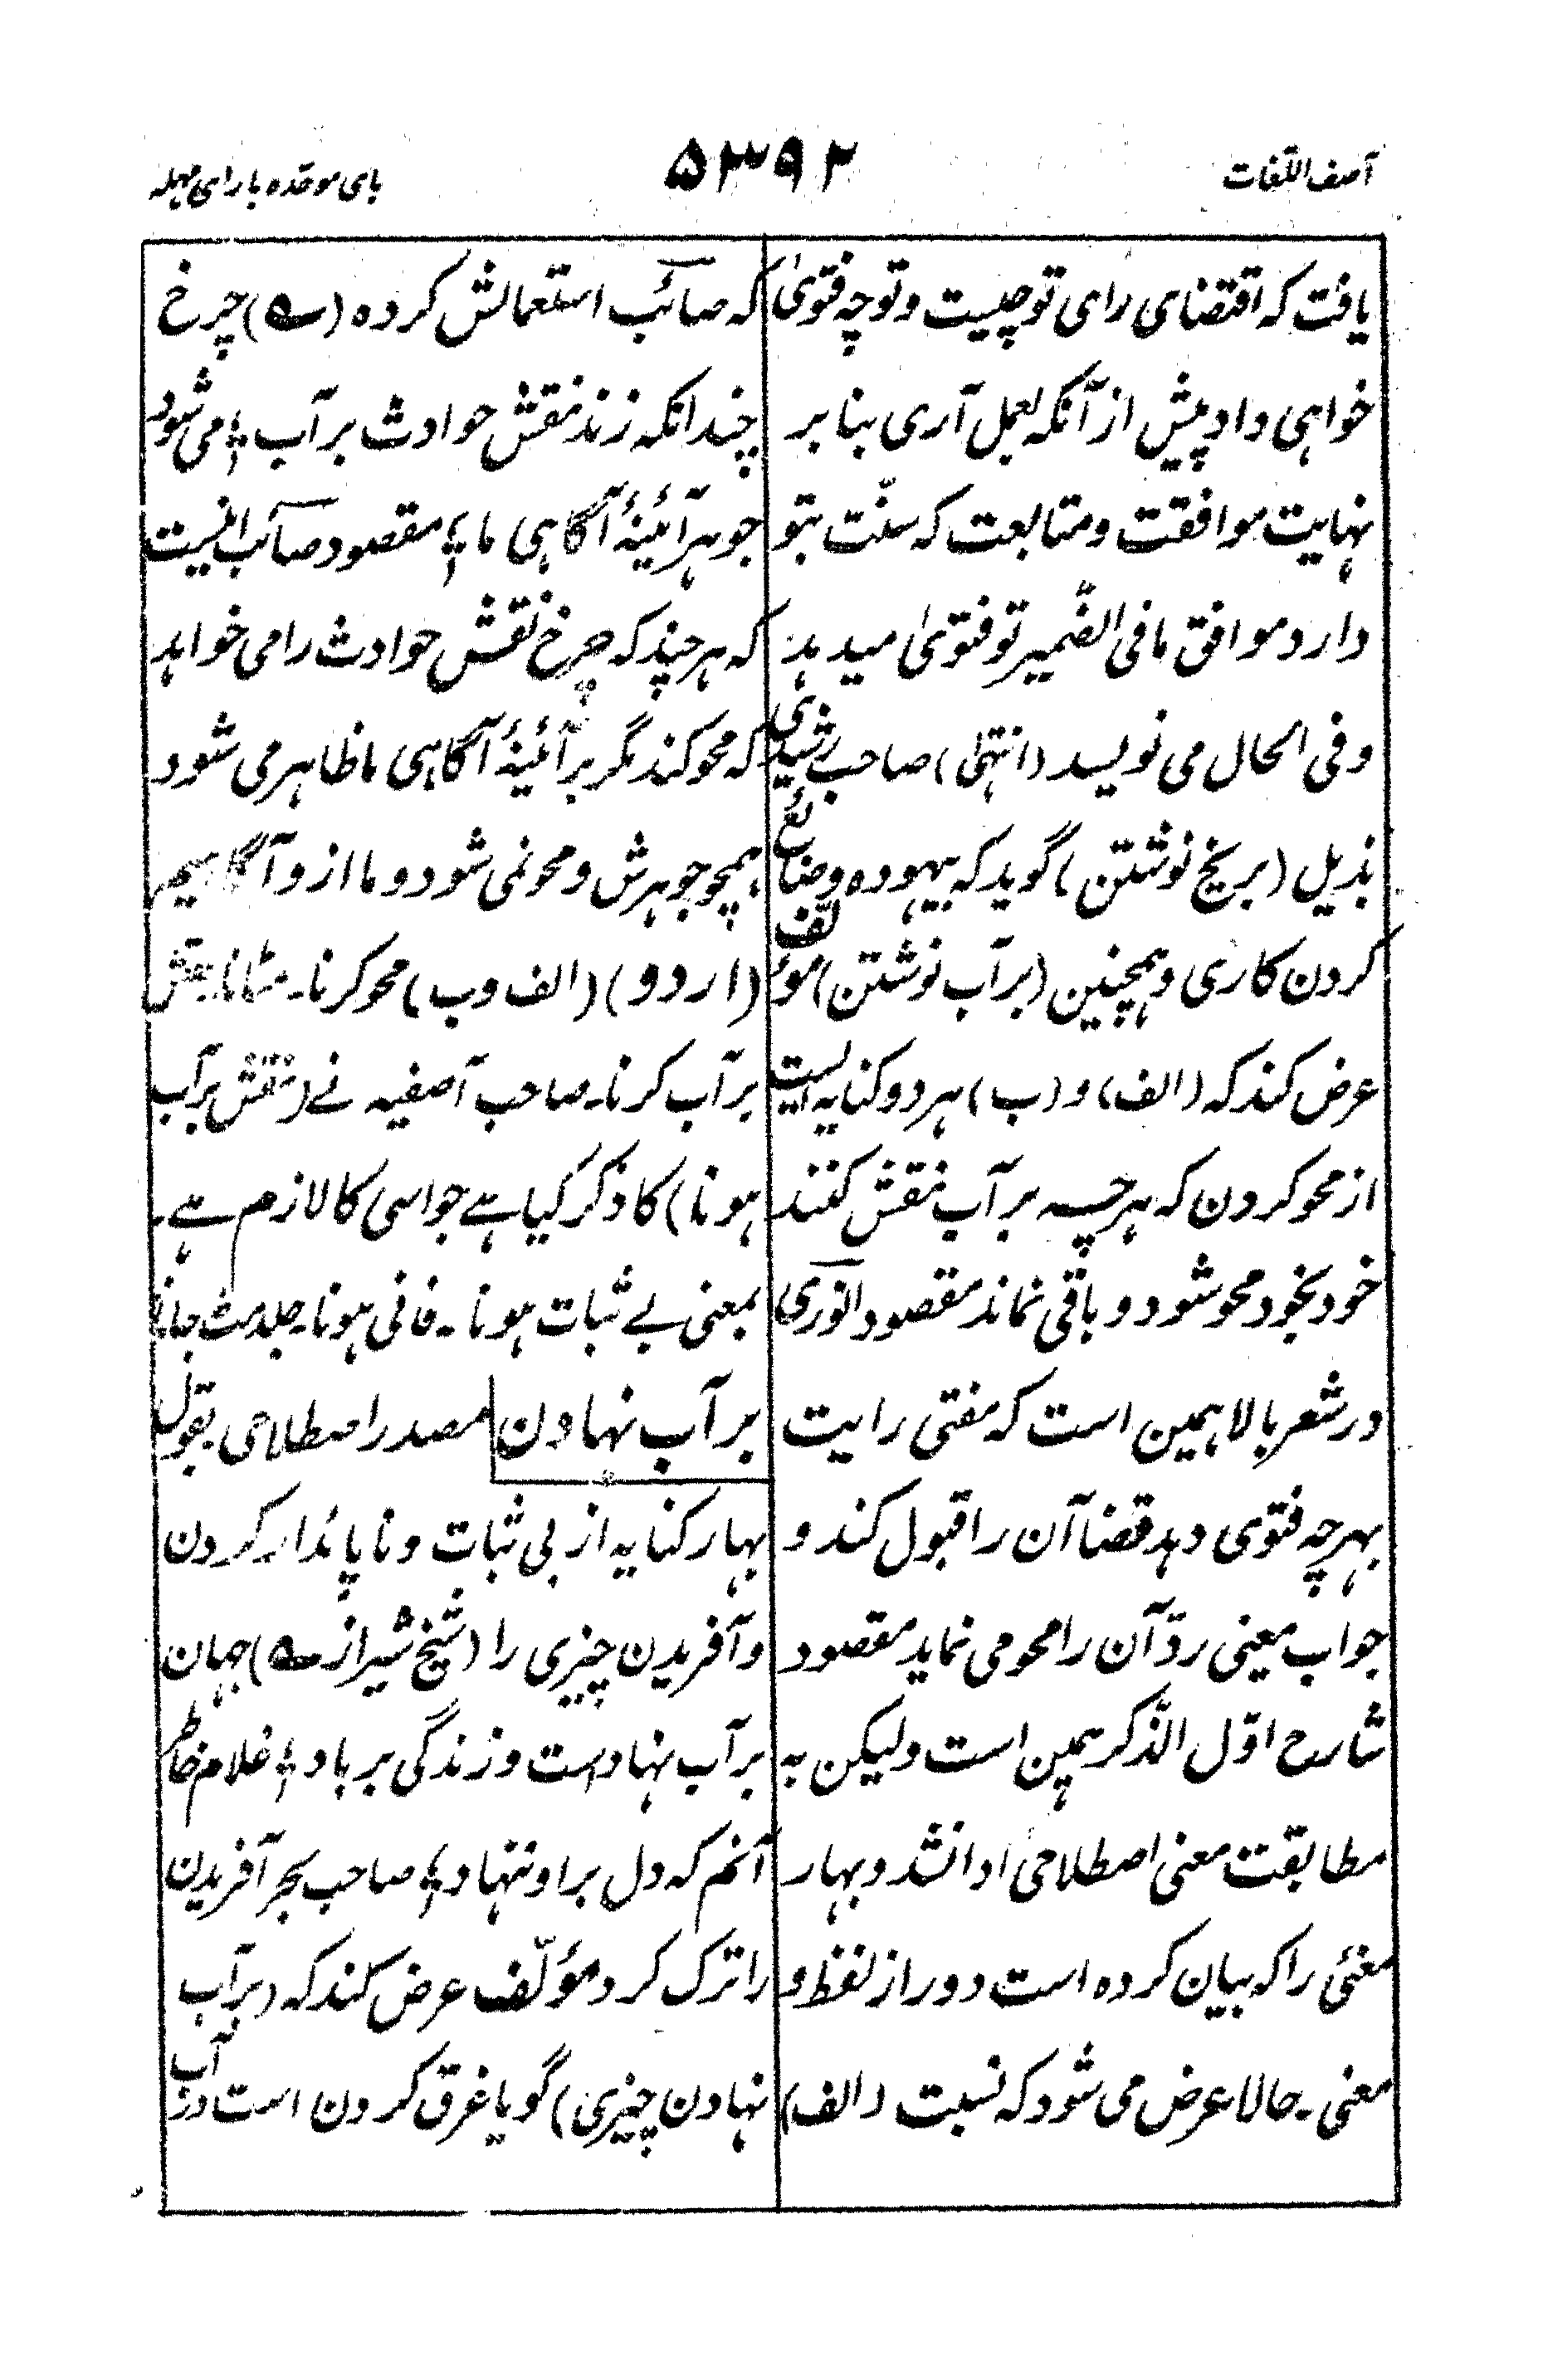 آصف اللغات
۵۳۹۲
بای موحّده با رای مهمله
یافت که اقتضای رای تو چیست و تو چه فتویٰ
خواهی داد پیش از آنکه بعمل آری بنا بر
نهایت موافقت و متابعت که سنّت بتو
دارد موافق ما فی الضّمیر تو فتویٰ میدهد
و فی الحال می نویسد (انتهیٰ) صاحب رشیدی
بذیل (بر یخ نوشتن) گوید که بیهوده و ضائع
کردن کاری و همچنین (بر آب نوشتن) مؤلّف
عرض کند که (الف) و (ب) هر دو کنایه ایست
از محو کردن که هر چه بر آب نقش کنند
خود بخود محو شود و باقی نماند مقصود انوری
در شعر بالا همین است که مفتی رایت
بهر چه فتوی دهد قضا آن را قبول کند و
جواب معینی ردّ آن را محو می نماید مقصود
شارح اوّل الذّکر همین است ولیکن به
مطابقت معنی اصطلاحی ادا نشد و بهار
معنئی را که بیان کرده است دور از لفظ و
معنی ۔ حالا عرض می شود که نسبت (الف)
که صائب استعمالش کرده (سه) چرخ
چندانکه زند نقش حوادث بر آب ؛ می شود
جوهر آئینۂ آگاهی ما ؛ مقصود صائب اینست
که هر چند که چرخ نقش حوادث را می خواهد
که محو کند مگر بر آئینۂ آگاهی ما ظاهر می شود
همچو جوهرش و محو نمی شود و ما ازو آگاهیم
(اردو) (الف و ب) محو کرنا ۔ مٹانا ۔ نقش
بر آب کرنا ۔ صاحب آصفیہ نے (نقش بر آب
ہونا) کا ذکر کیا ہے جو اسی کا لازم ہے ۔
بمعنی بے ثبات ہونا ۔ فانی ہونا ۔ جلد مٹ جانا
بر آب نهادن مصدر اصطلاحی بقول
بهار کنایه از بی ثبات و ناپائدار کردن
و آفریدن چیزی را (شیخ شیراز سه) جهان
بر آب نهادست و زندگی بر باد ؛ غلام خاطر
آنم که دل بر او ننهاد ؛ صاحب بحر آفریدن
را ترک کرد مؤلّف عرض کند که (بر آب
نهادن چیزی) گویا غرق کردن است در آب